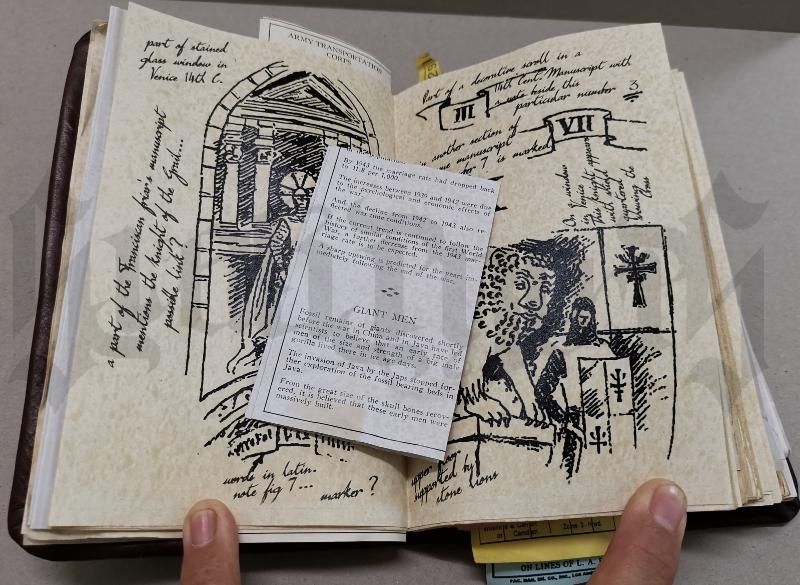 part of stained
glass window in
Venice 14th C.
a part of the Franciscan friar's manuscript
mentions the knight of the Grail....
possible link?
words in latin.
note fig 7... marker?
ARMY TRANSPORTATION
CORPS
By 1943 the marriage rats had dropped back
to 11.8 per 1,000.
The increases between 1939 and 1942 were due
to the psychological and economic effects of
the war.
And the decline from 1942 to 1943 also re-
war time conditions.
If the current trend is continued to follow the
of similar conditions of the first World
War, a further decrease from the 1943 mar-
riage rate is to be expected.
A sharp upswing is predicted for the years im-
mediately following the end of the war.
GIANT MEN
Fossil remains of giants discovered shortly
before the war in China and in Java have led
scientists to believe that an early race of
men of the size and strength of a big male
gorilla lived there in ice age days.
The invasion of Java by the Japs stopped fur-
ther exploration of the fossil bearing beds in
Java.
From the great size of the skull bones recov-
ered, it is believed that these early men were
massively built.
Part of a decorative scroll in a
14th Cent. Manuscript with
a note beside, this
particular number 3
III
in another section of
same manuscript
7 is marked
VII
On window
in Venice
this knight appears
with shield
upper floor
supported by
stone lions
or Camdian
Zone
ON LINES OF L. A.